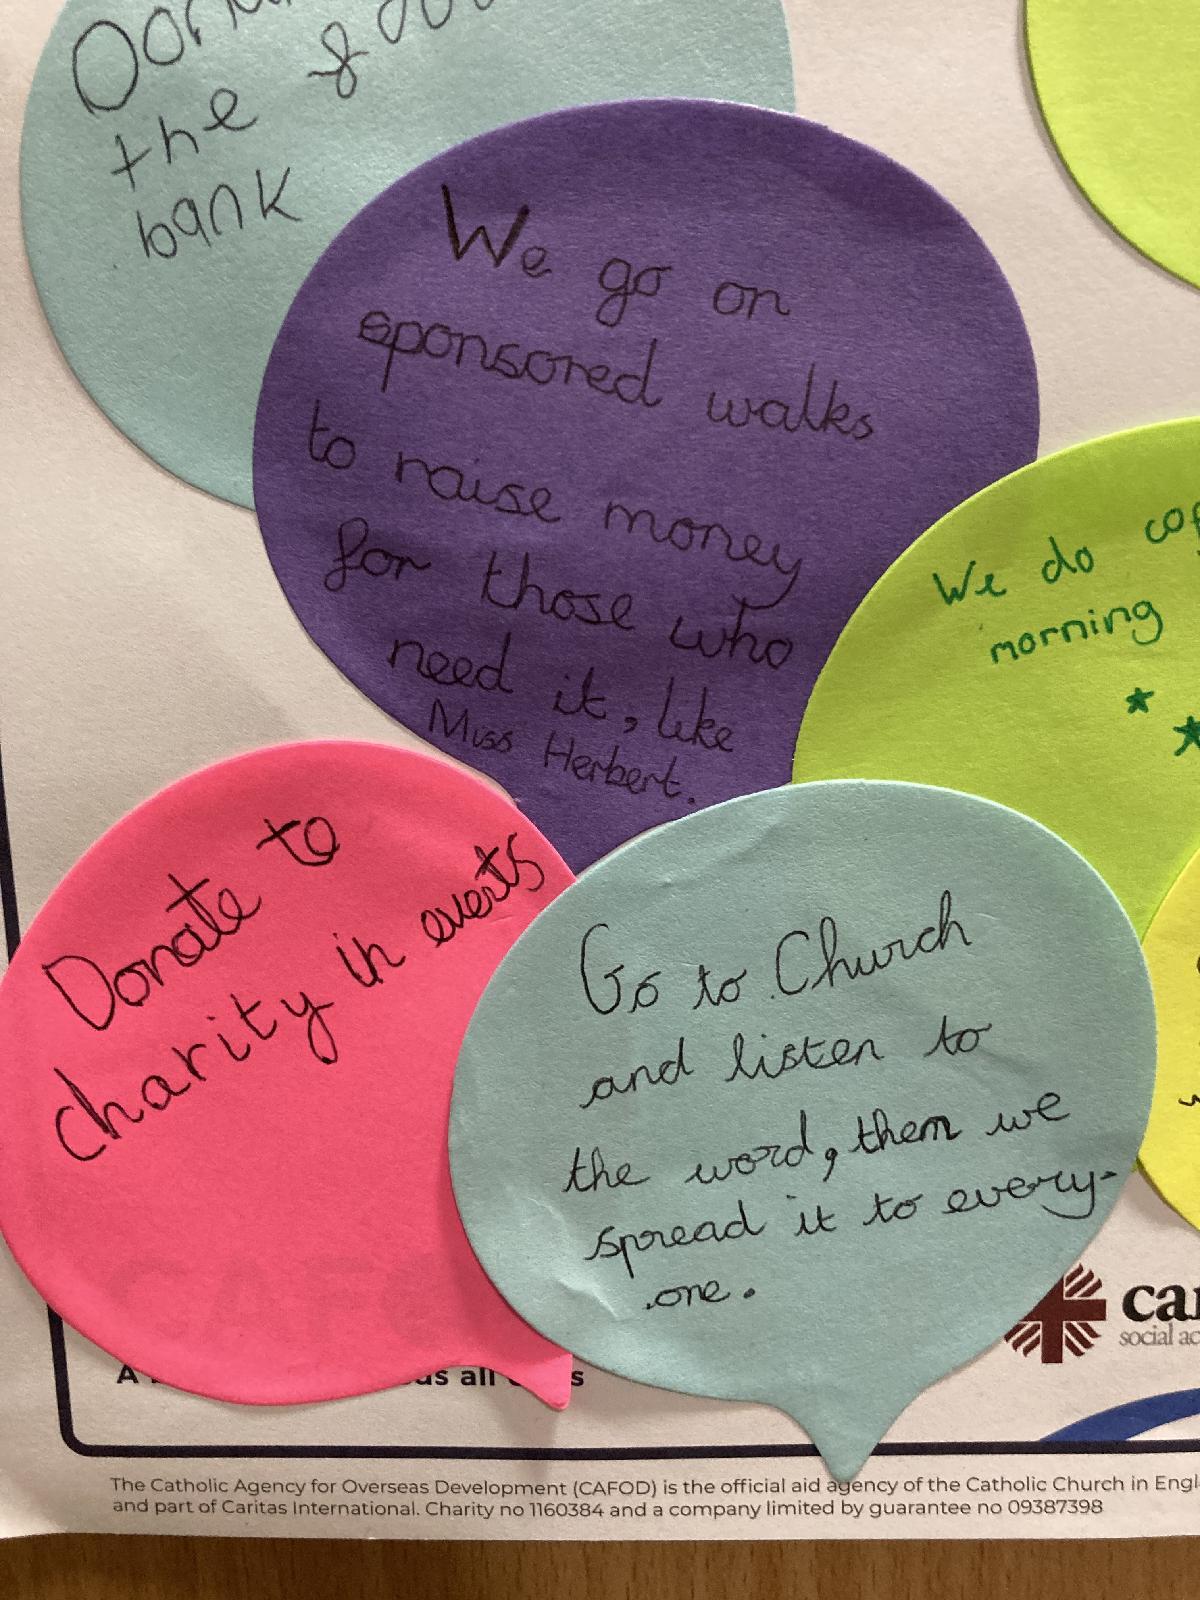 the
bank
We go on
sponsored walks
to raise money
for those who
need it, like
Miss Herbert.
We do
morning
Donate to
charity in events
Go to Church
and listen to
the word, them we
spread it to every-
one.
social
The Catholic Agency for Overseas Development (CAFOD) is the official aid agency of the Catholic Church in
and part of Caritas International. Charity no 1160384 and a company limited by guarantee no 09387398